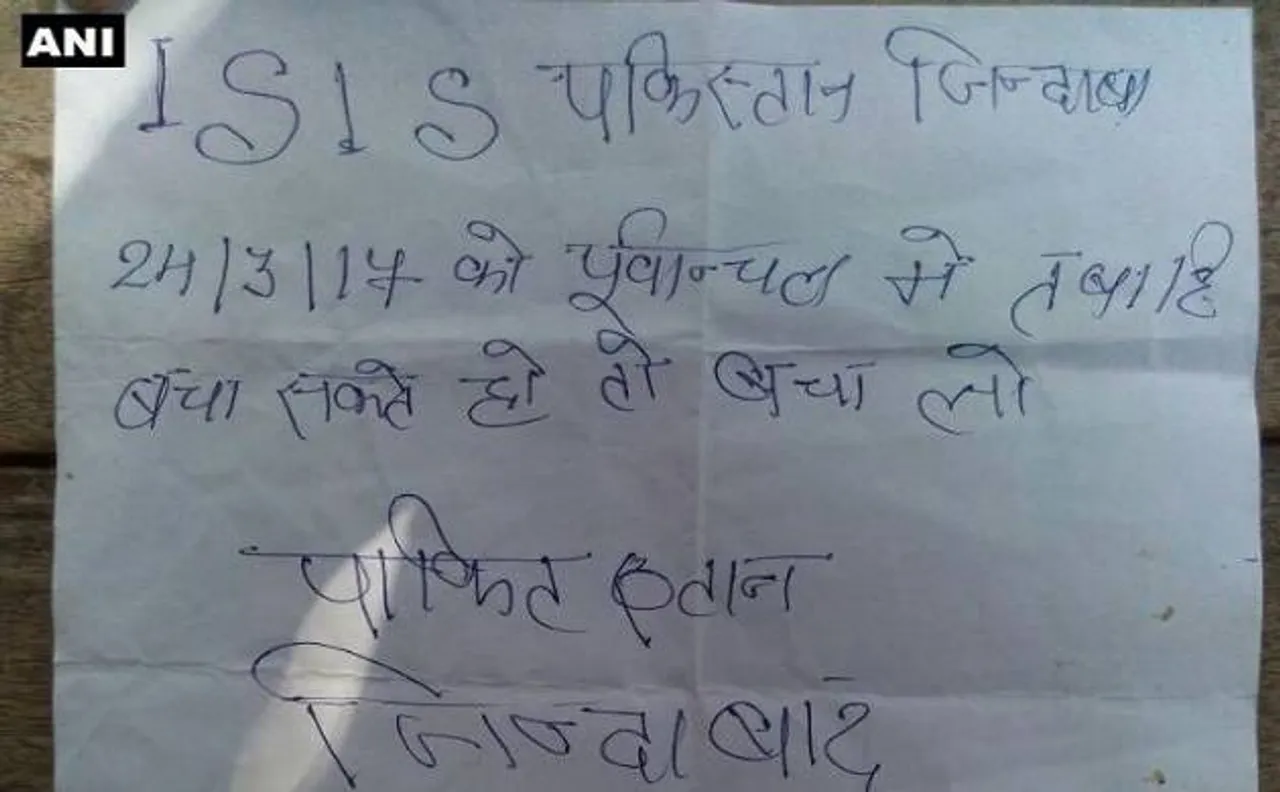 ANI
ISIS पकिस्तान जिन्दाबा
24/3/17 को पूर्वान्चल मे तबाहि
बचा सकते हो तो बचा लो
पाकित इतान
जिन्दाबाद